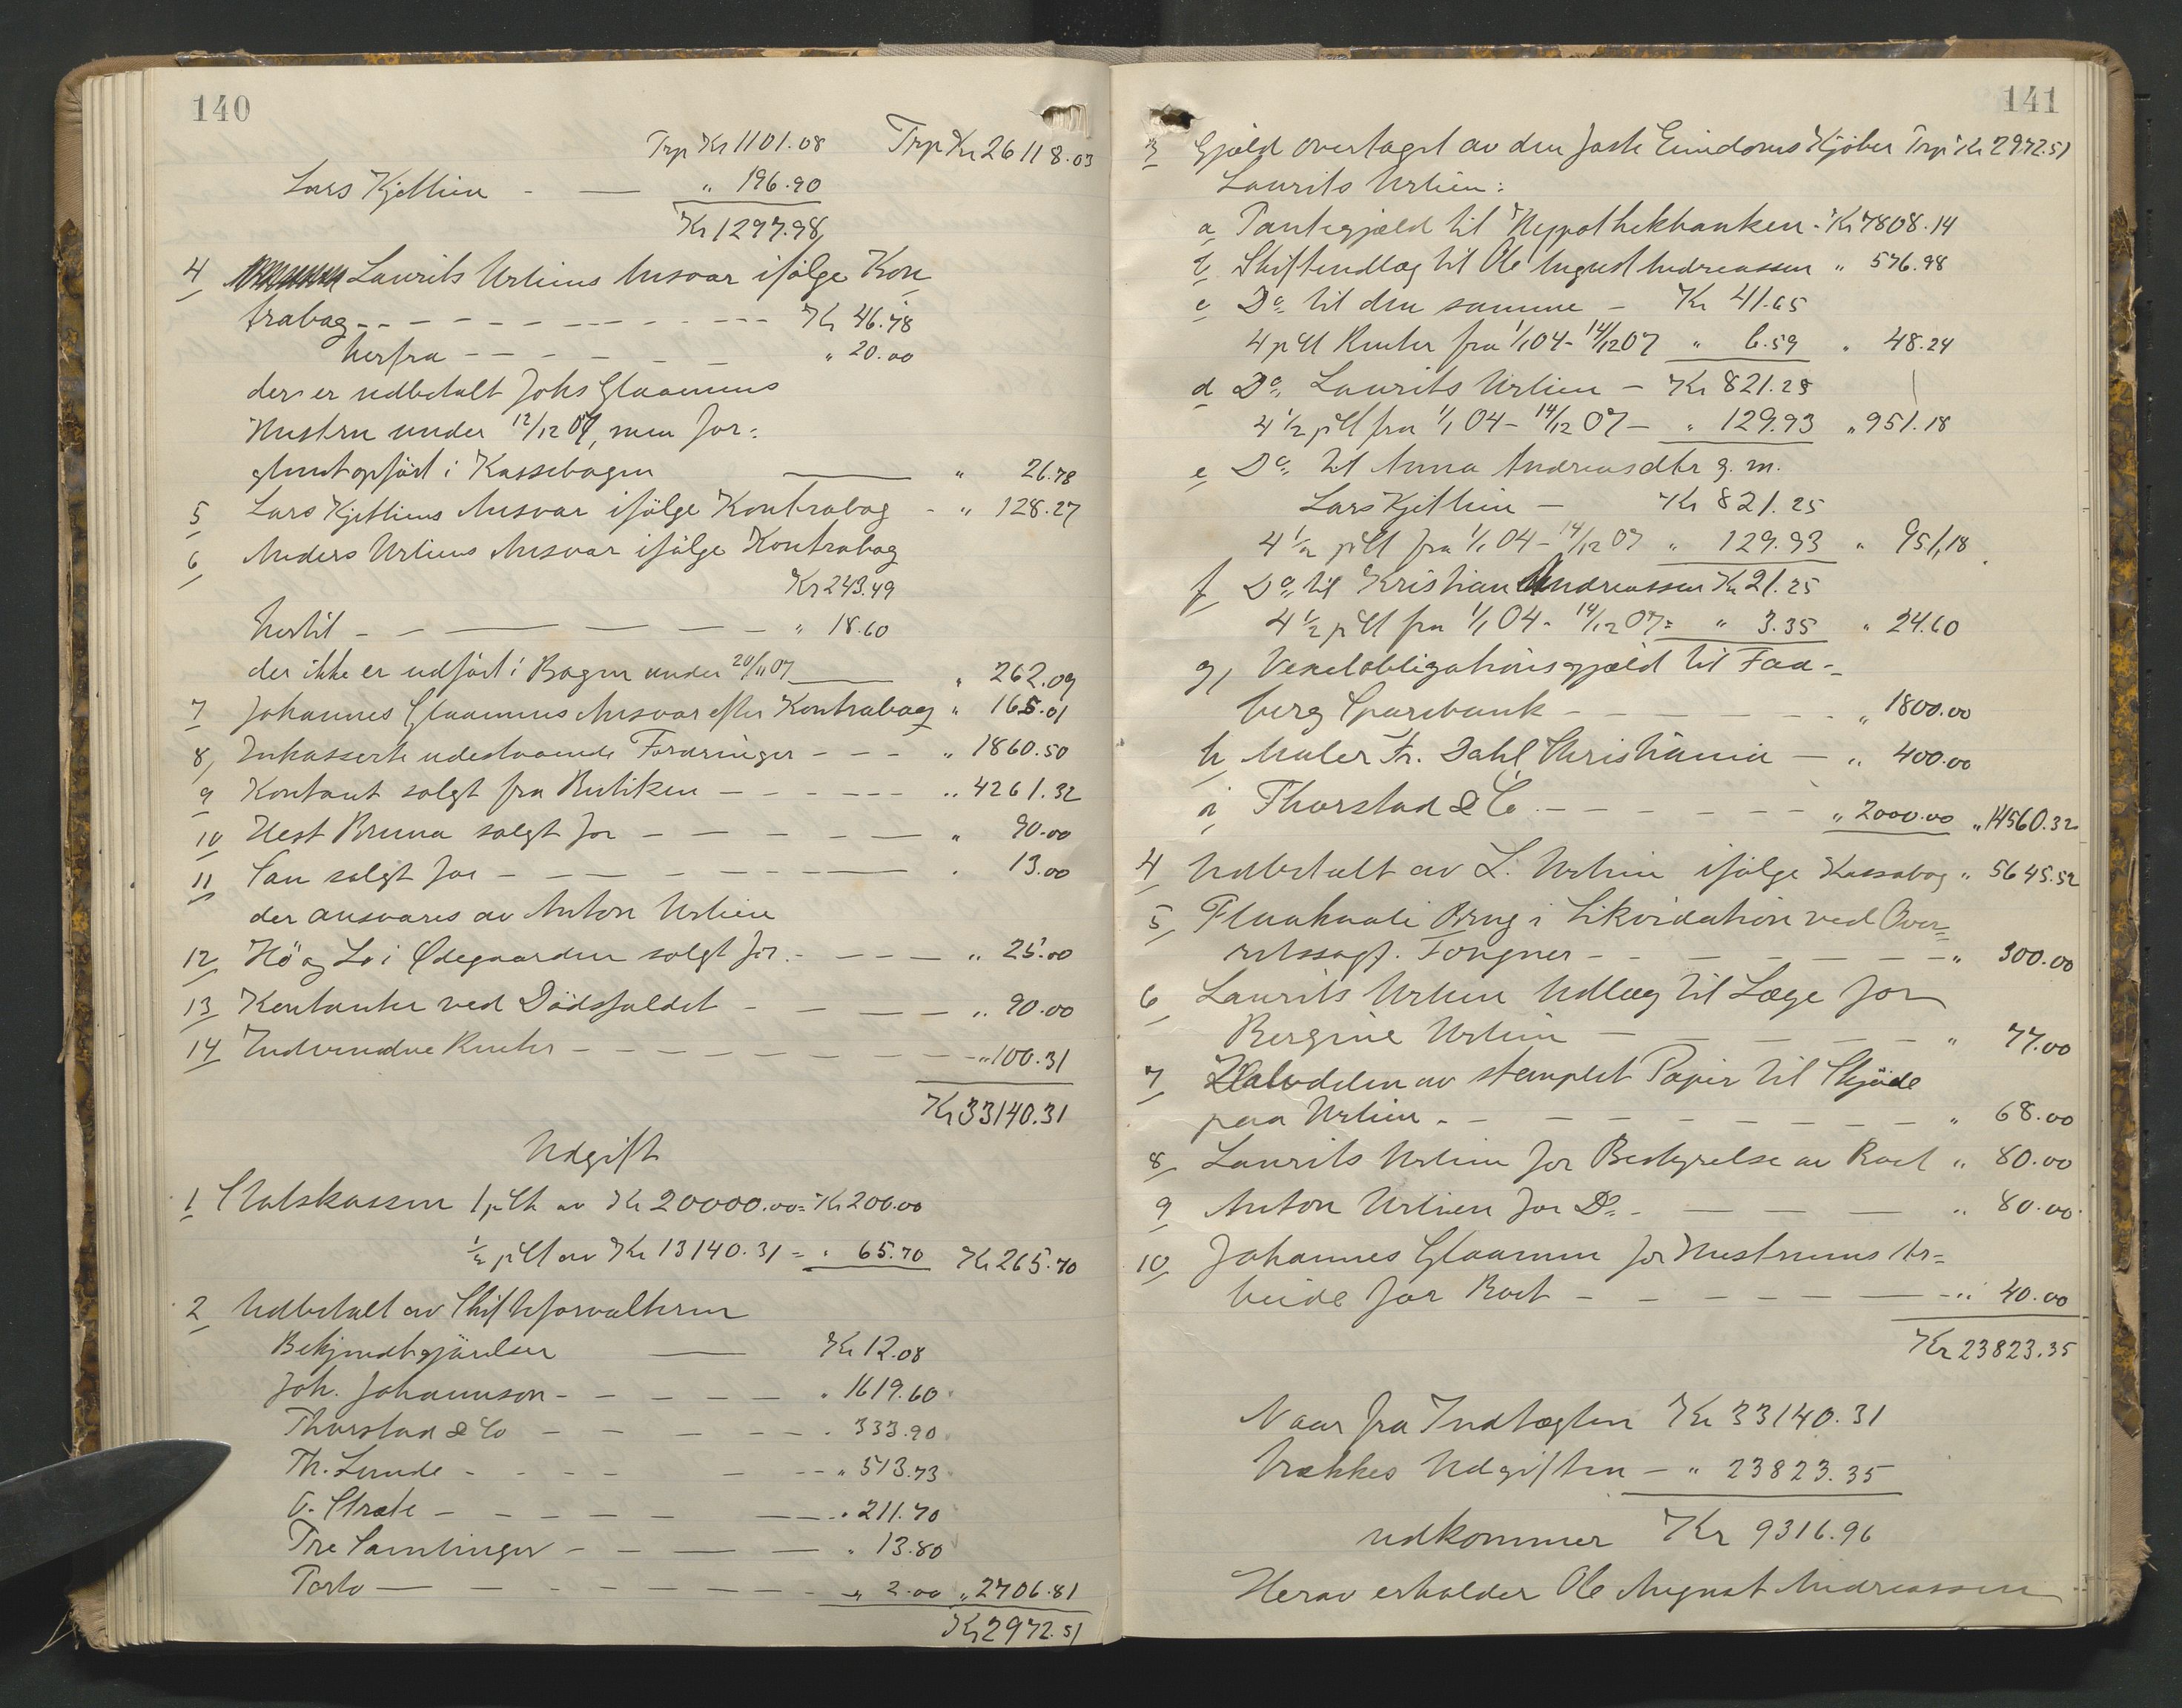 140
Trp Kr 1101.08 Trp Kr 26118.03
Lars Kjetlien - — " 196.90
Kr 1297.98
4 Laurits Urliens Ansvar ifølge Kon
trabog - - - - - - - Kr 46.78
herfra - - - - - " 20.00
der er udbetalt Johs Glaamens
Hustru under 12/12 07, men for-
glemt opført i Kassebogen — " 26.78
5 Lars Kjetliens Ansvar ifølge Kontrabog - " 128.27
6 Anders Urliens Ansvar ifølge Kontrabog
Kr 243.49
hertil - - — — — " 18.60
der ikke er udført i Bogen under 20/11 07 — " 262.09
7 Johannes Glaamens Ansvar efter Kontrabog " 165.01
8, Inkasserte udestaaende Fordringer - - - " 1860.50
9 Kontant solgt fra Butiken - - - - - " 4261.32
10 Hest Bruna solgt for - - - - — " 90.00
11 Sau solgt for - - - - - — " 13.00
der ansvares av Anton Urlien
12, Hö og Lo i Ødegaarden solgt for - - - — " 25.00
13 Kontanter ved Dödsfaldet - - — — " 90.00
14 Indvundne Renter - - - - - - - " 100.31
Kr 33140.31
Udgift
1 Statskassen 1 pCt av Kr 20000.00 = Kr 200.00
1/2 pCt av Kr 13140.31 = " 65.70 Kr 265.70
2 Udbetalt av Skifteforvalteren
Bekjendtgjörelser — Kr 12.08
Joh. Johannson - - - - — " 1619.60
Thorstad & Co - - - - - " 333.90
Th. Lunde - - - - - - " 513.73
O. Stræte - - - - - — " 211.70
Tre Samlinger - - — — " 13.80
Porto — - - - - - " 2.00 " 2706.81
Kr 2972.51
141
3 Gjæld overtaget av den faste Eiendoms Kjöber Trp Kr 2972.51
Laurits Urlien:
a Pantegjæld til Hypothekbanken - Kr 7808.14
b, Skifteudlæg til Ole August Andreassen " 576.98
c Do til den samme - Kr 41.65
4 pCt Renter fra 1/1 04 - 14/12 07 " 6.59 " 48.24
d Do, Laurits Urlien - Kr 821.25
4 1/2 pCt fra 1/1 04 - 14/12 07 - " 129.93 " 951.18
e Do til Anna Andreasdtr g. m.
Lars Kjetlien - Kr 821.25
4 1/2 pCt fra 1/1 04 - 14/12 07 " 129.93 " 951,18
f Do til Kristian Andreassen Kr 21.25
4 1/2 pCt fra 1/1 04 - 14/12 07 = " 3.35 " 24.60
g, Vexelobligationsgjæld til Faa-
berg Sparebank - - - - - - " 1800.00
h Maler Fr. Dahl Christiania — " 400.00
i, Thorstad & Co - - - - - - " 2000.00 " 14560.32
4 Udbetalt av L. Urlien ifølge Kassabog " 5645.52
5, Flaakaali Brug i Likvidation ved Over-
retssagf. Fougner - - - - - - " 300.00
6 Laurits Urlien Udlæg til Læge for
Bergine Urlien — — — — " 77.00
7 Halvdelen av stemplet Papir til Skjöde
paa Urlien - - - - - - - " 68.00
8, Laurits Urlien for Bestyrelse av Boet " 80.00
9 Anton Urlien for Do - — — — " 80.00
10, Johannes Glaamen for Hustruens Ar-
beide for Boet - - - - - — " 40.00
Kr 23823.35
Naar fra Indtægten Kr 33140.31
trækkes Udgiften - " 23823.35
udkommer Kr 9316.96
Herav erholder Ole August Andreassen